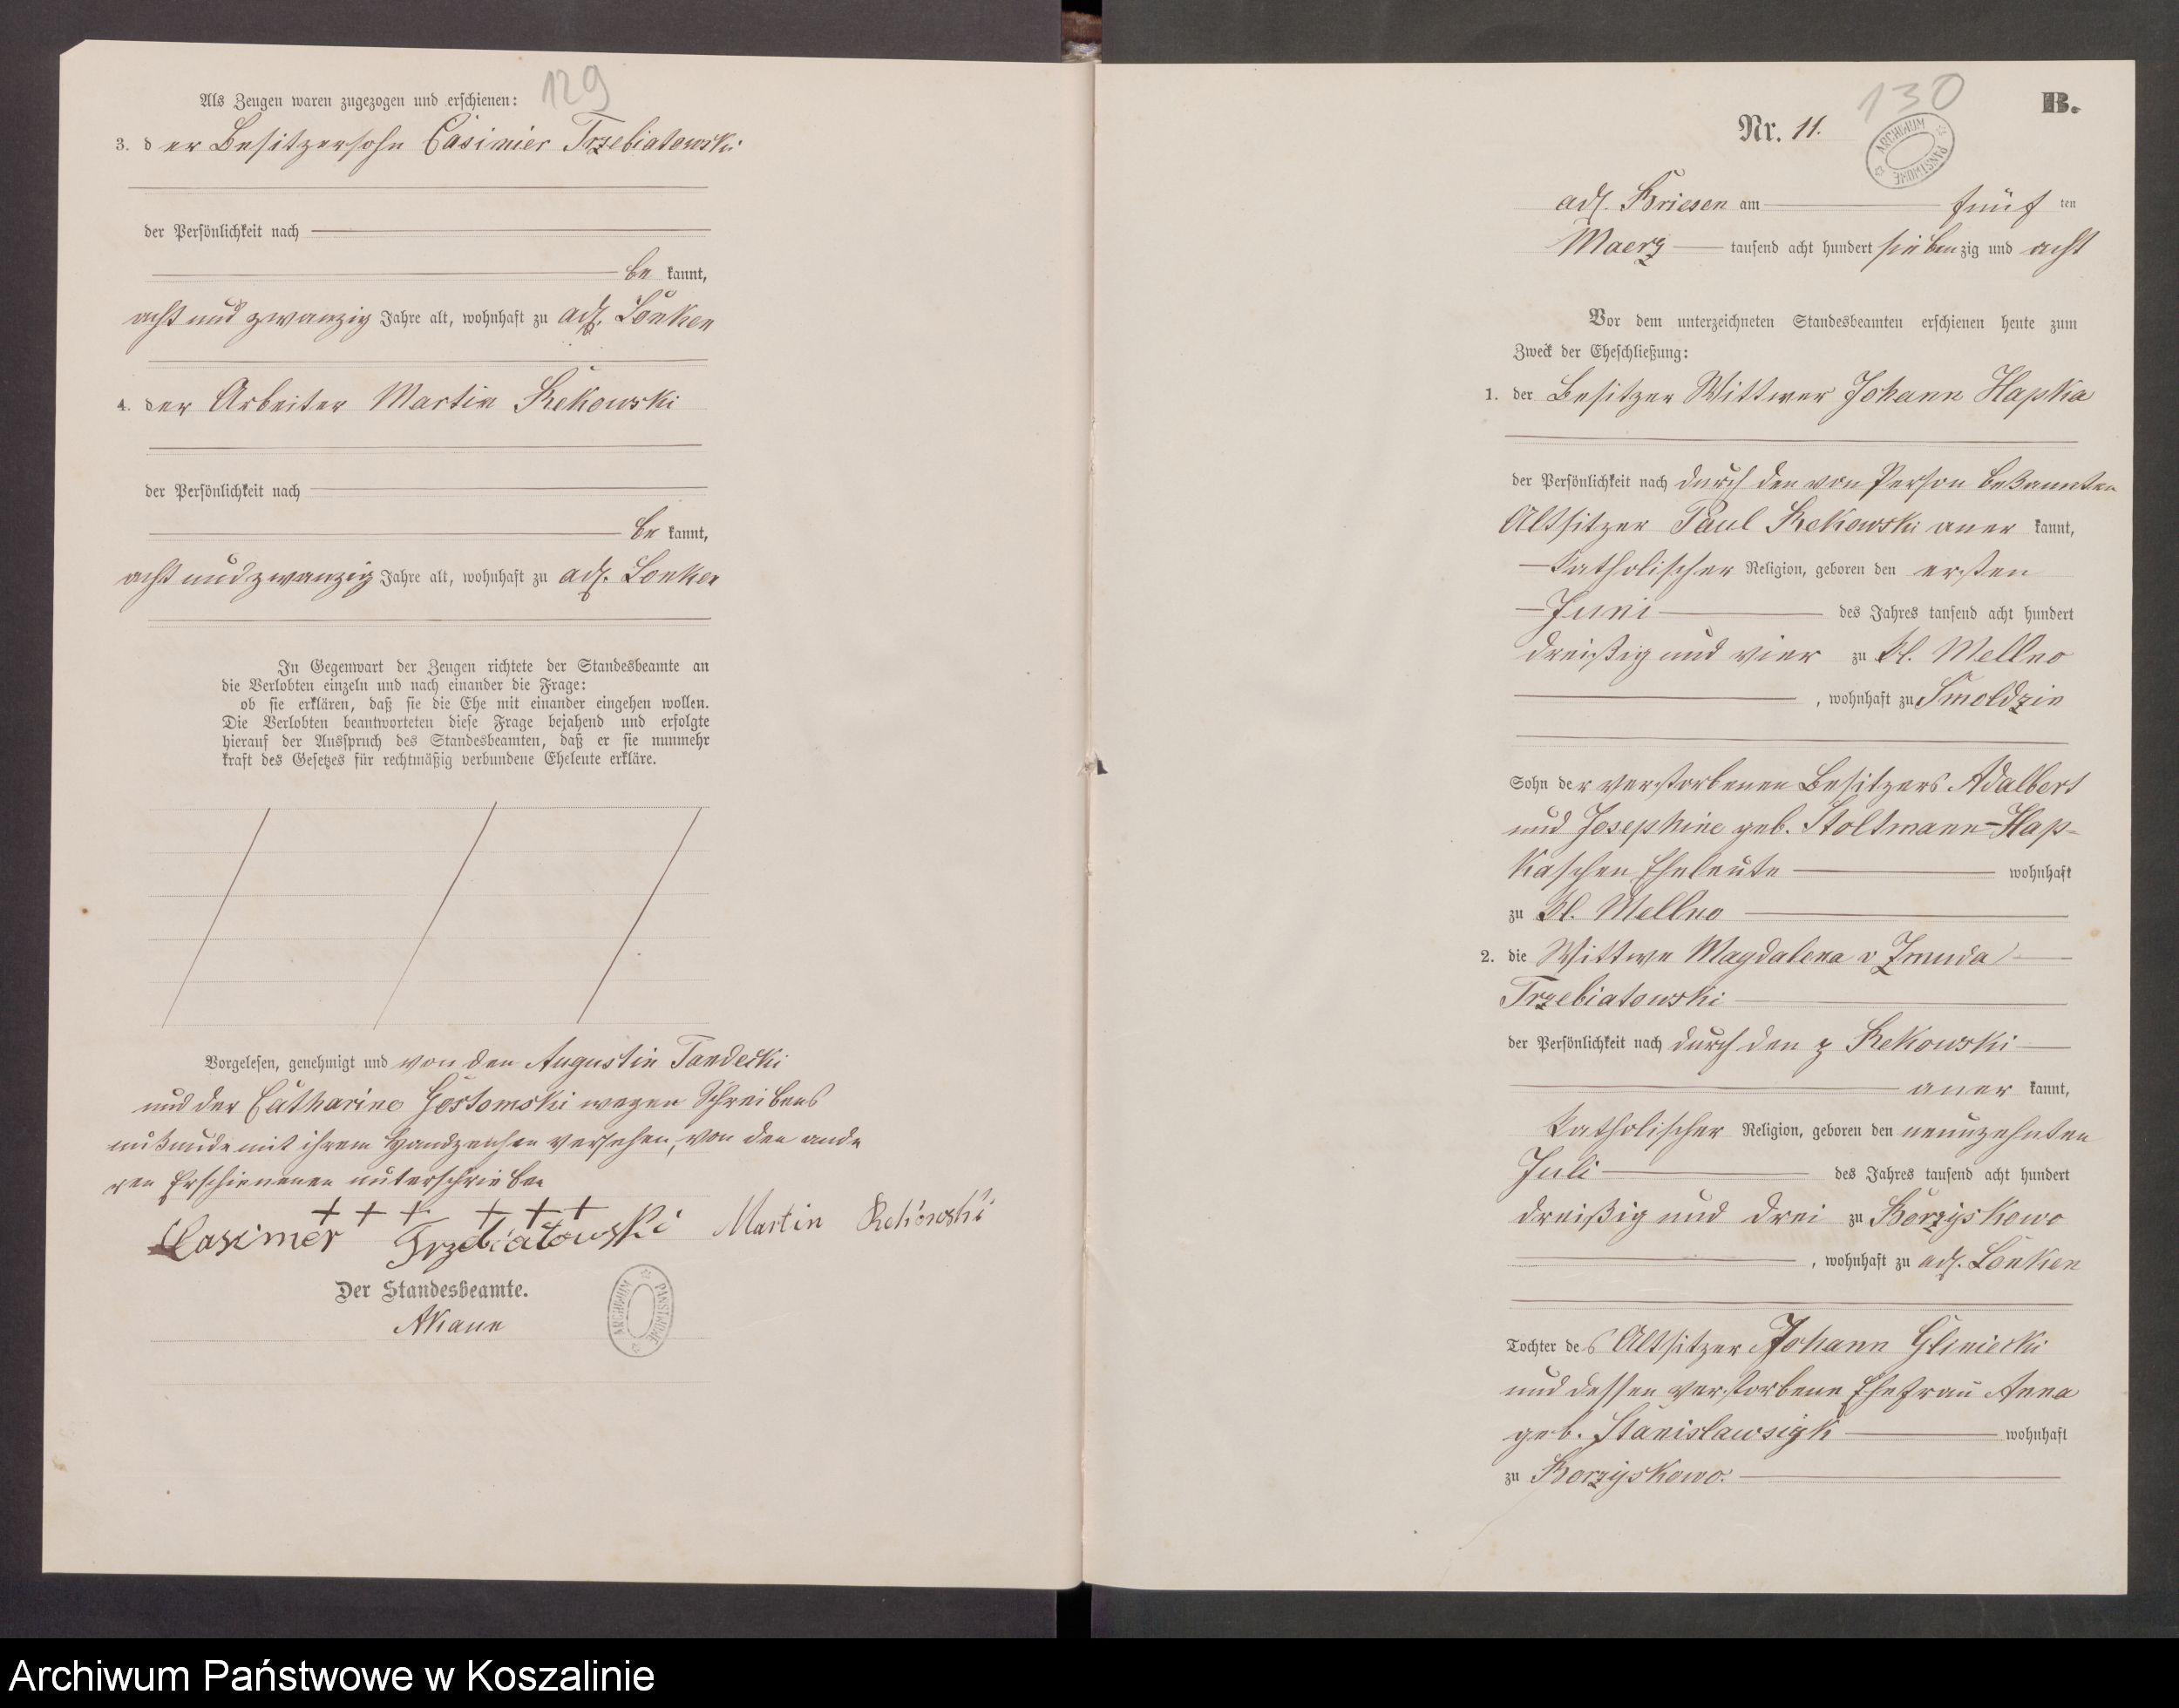 129
Als Zeugen waren zugezogen und erschienen:
3. der Besitzersohn Casimier Trzebiatowski
der Persönlichkeit nach
be kannt,
acht und zwanzig Jahre alt, wohnhaft zu adl. Lonken
4. der Arbeiter Martin Rekowski
der Persönlichkeit nach
be kannt,
acht und zwanzig Jahre alt, wohnhaft zu adl. Lonken
In Gegenwart der Zeugen richtete der Standesbeamte an
die Verlobten einzeln und nach einander die Frage:
ob sie erklären, daß sie die Ehe mit einander eingehen wollen.
Die Verlobten beantworteten diese Frage bejahend und erfolgte
hierauf der Ausspruch des Standesbeamten, daß er sie nunmehr
kraft des Gesetzes für rechtmäßig verbundene Eheleute erkläre.
Vorgelesen, genehmigt und von den Augustin Tandecki
und der Catharine Gostomski wegen Schreibens
unkunde mit ihrem Handzeichen versehen, von den ande
ren Erschienenen unterschrieben
+ + + + + +
Casimer Trzebiatowski Martin Rekowski
Der Standesbeamte.
ARCHIWUM PAŃSTWOWE
130
B.
Nr. 11.
ARCHIWUM PAŃSTWOWE
adl. Briesen am fünf ten
Maerz tausend acht hundert siebenzig und acht
Vor dem unterzeichneten Standesbeamten erschienen heute zum
Zweck der Eheschließung:
1. der Besitzer Wittwer Johann Hapka
der Persönlichkeit nach durch den von Person bekannten
Altsitzer Paul Rekowski aner kannt,
katholischer Religion, geboren den ersten
Juni des Jahres tausend acht hundert
dreißig und vier zu Kl. Mellno
, wohnhaft zu Smoldzin
Sohn der verstorbenen Besitzers Adalbert
und Josephine geb. Stoltmann-Hap-
kaschen Eheleute wohnhaft
zu Kl. Mellno
2. die Wittwe Magdalena v Zmuda
Trzebiatowski
der Persönlichkeit nach durch den z Rekowski
aner kannt,
katholischer Religion, geboren den neunzehnten
Juli des Jahres tausend acht hundert
dreißig und drei zu Borzyskowo
, wohnhaft zu adl. Lonken
Tochter des Altsitzer Johann Gliniecki
und dessen verstorbene Ehefrau Anna
geb. wohnhaft
zu Borzyskowo.
Archiwum Państwowe w Koszalinie